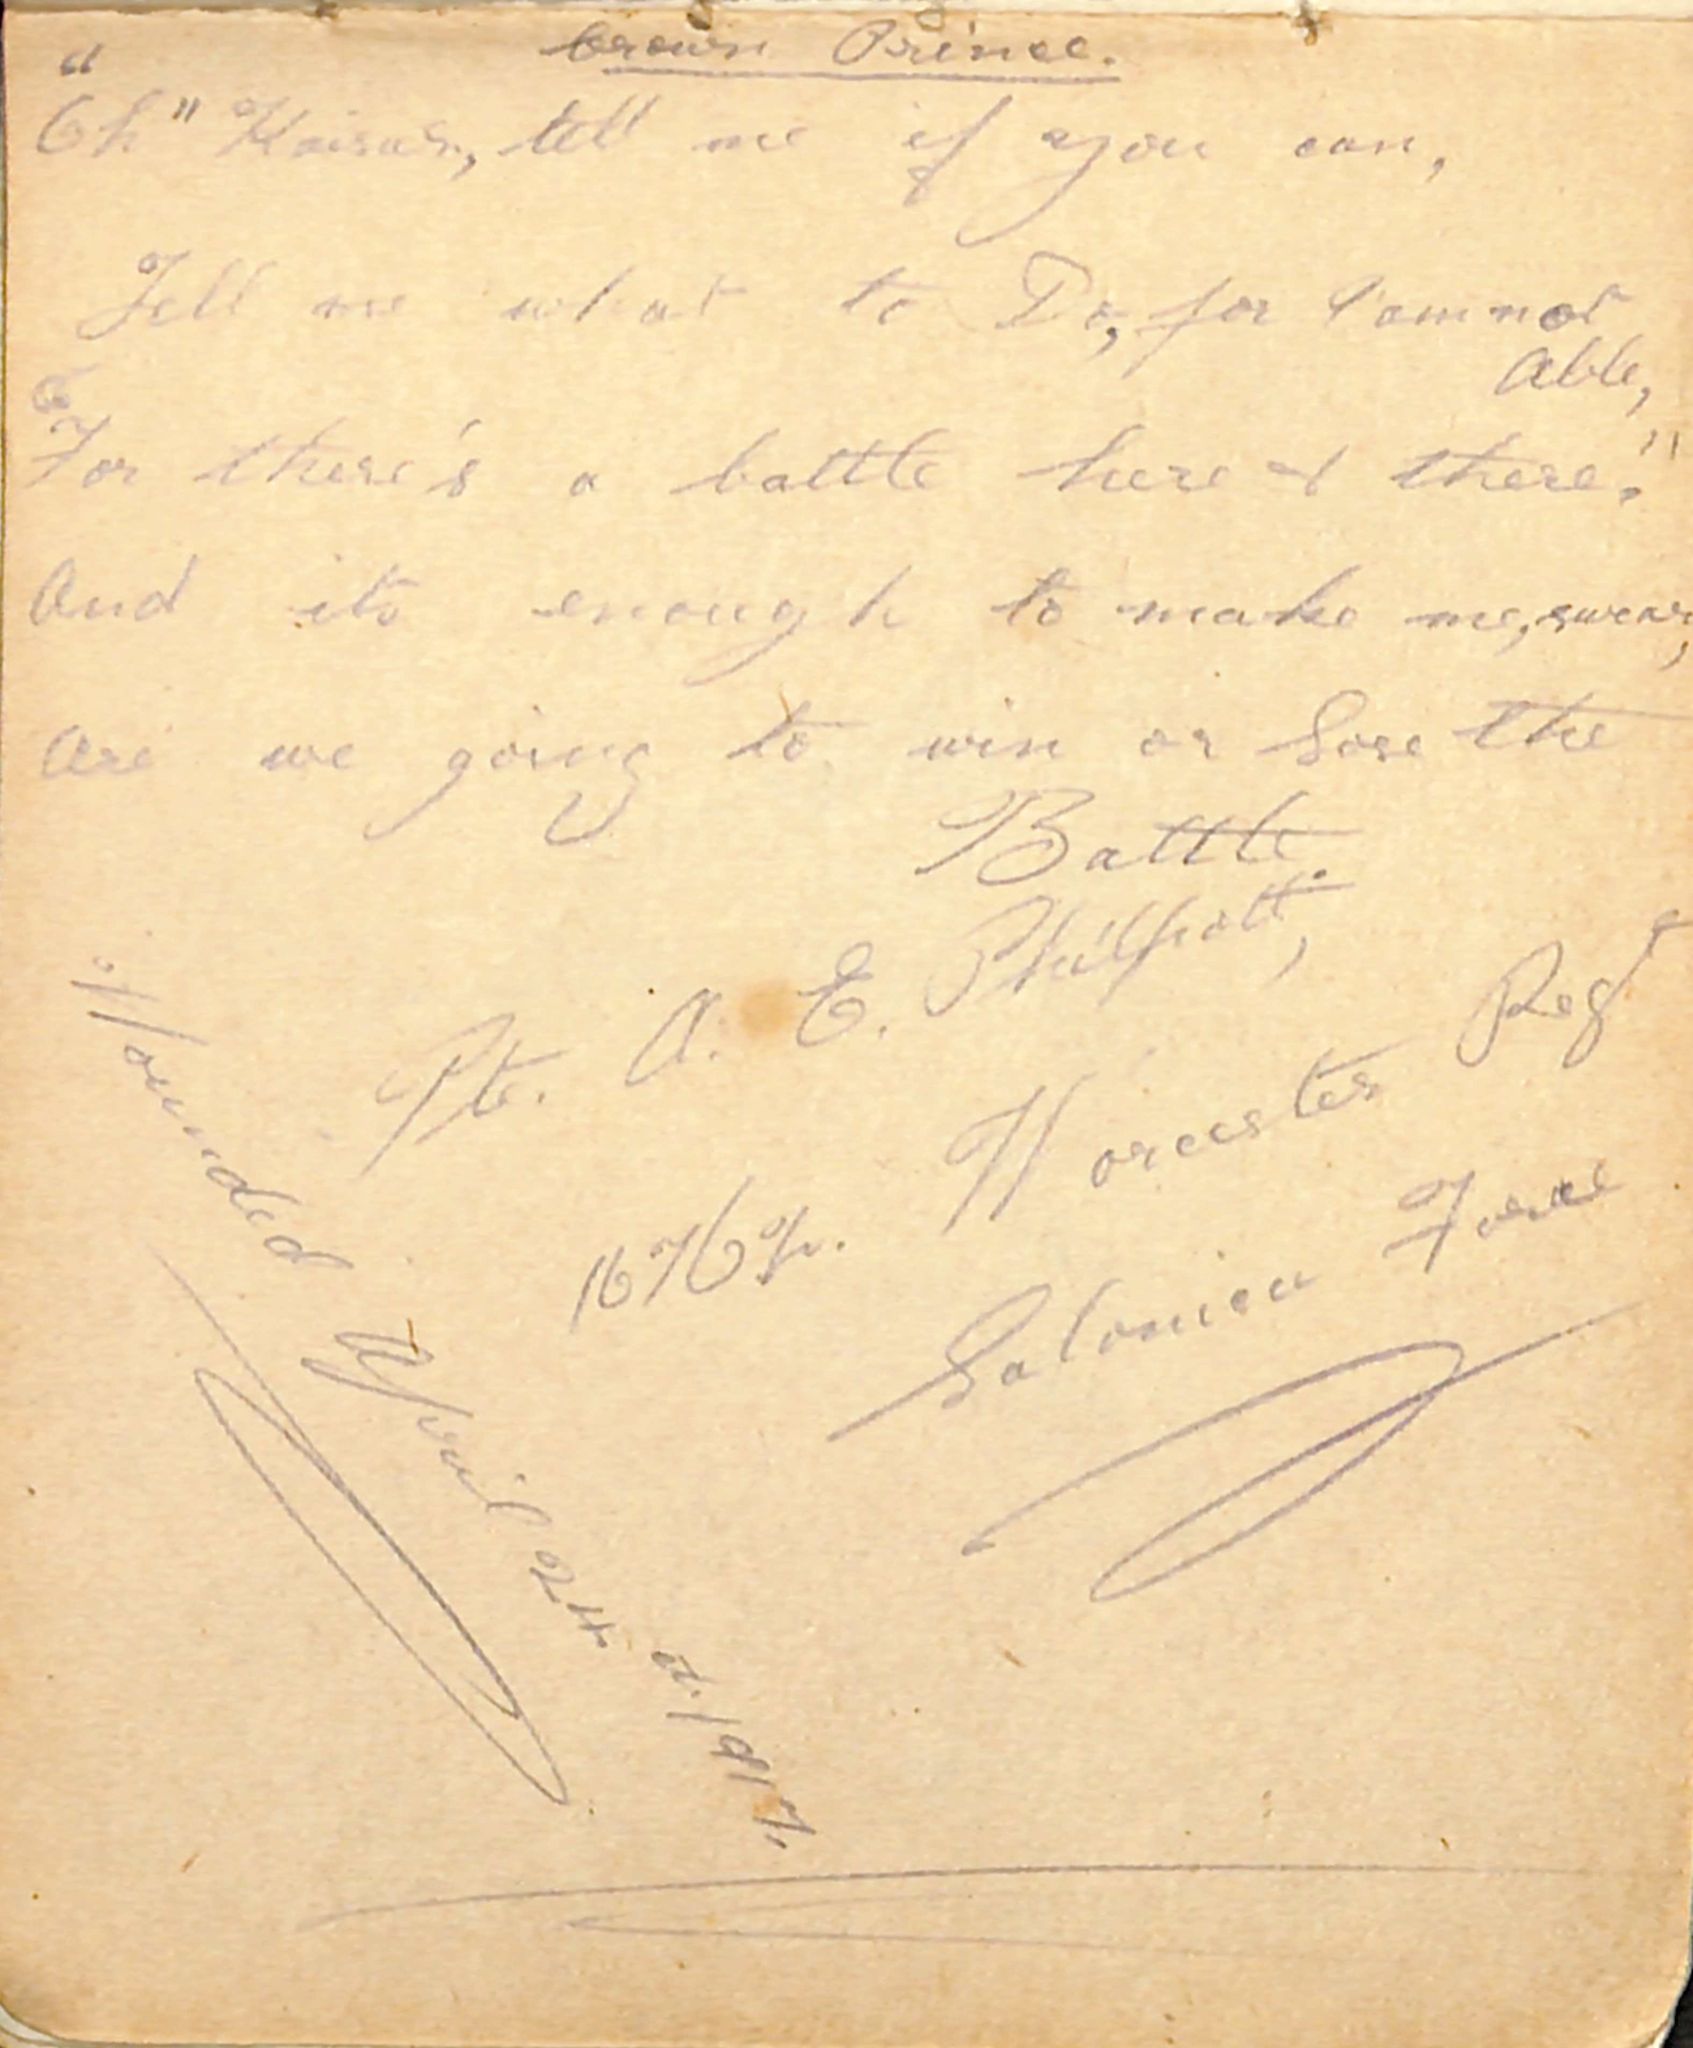 Crown Prince.
"Oh" Kaiser, tell me if you can,
Tell me what to Do, for I am not
Able,
For there's a battle here & there."
And its enough to make me, swear,
Are we going to win or Lose the
Battle.
Pte. A. E. Philpott,
Worcester Regt
Salonica Force
Wounded April 24th 1917.